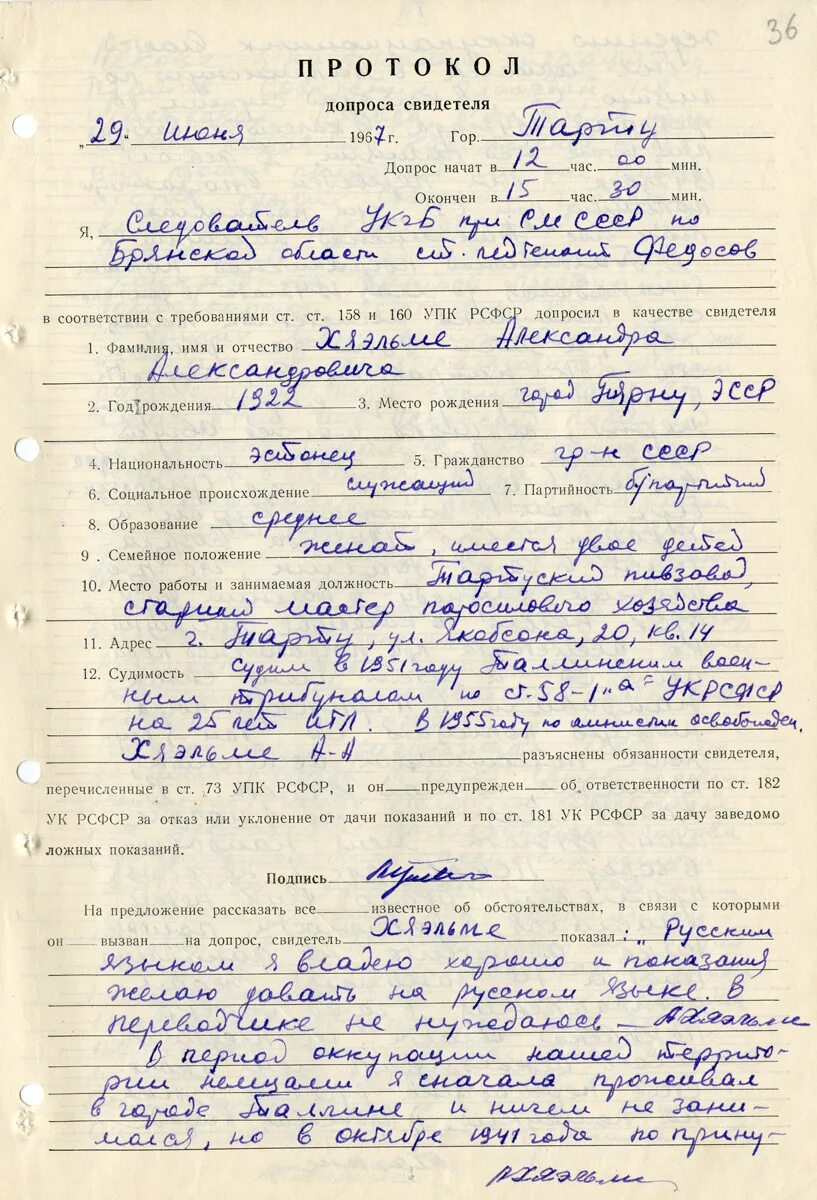 36
ПРОТОКОЛ
допроса свидетеля
„29" июня 1967 г. Гор. Тарту
Допрос начат в 12 час. 00 мин.
Окончен в 15 час. 30 мин.
Я, Следователь УКГБ при СМ СССР по
Брянской области ст. лейтенант Федосов
в соответствии с требованиями ст. ст. 158 и 160 УПК РСФСР допросил в качестве свидетеля
1. Фамилия, имя и отчество Хяэльме Александра
Александровича
2. Год рождения 1922 3. Место рождения город Пярну, ЭССР
4. Национальность эстонец 5. Гражданство гр-н СССР
6. Социальное происхождение служащий 7. Партийность б/партийный
8. Образование среднее
9. Семейное положение женат, имеется двое детей
10. Место работы и занимаемая должность Тартуский пивзавод,
старший мастер паросилового хозяйства
11. Адрес г. Тарту, ул. Якобсона, 20, кв. 14
12. Судимость судим в 1951 году Таллинским воен-
ным трибуналом по ст. 58-1 „а" УК РСФСР
на 25 лет ИТЛ. В 1955 году по амнистии освобожден.
Хяэльме А-А разъяснены обязанности свидетеля,
перечисленные в ст. 73 УПК РСФСР, и он предупрежден об ответственности по ст. 182
УК РСФСР за отказ или уклонение от дачи показаний и по ст. 181 УК РСФСР за дачу заведомо
ложных показаний.
Подпись
На предложение рассказать все известное об обстоятельствах, в связи с которыми
он вызван на допрос, свидетель Хяэльме показал: „Русским
языком я владею хорошо и показания
желаю давать на русском языке. В
переводчике не нуждаюсь – АХяэльме
В период оккупации нашей террито-
рии немцами я сначала проживал
в городе Таллине и ничем не зани-
мался, но в октябре 1941 года по прину-
АХяэльме